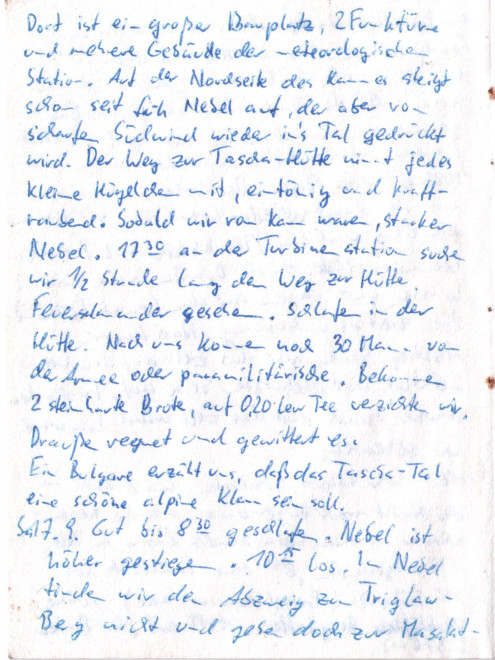 Dort ist ein großer Bauplatz, 2 Funktürme
und mehere Gebäude der meteorologischen
Station. Auf der Nordseite des Kammes steigt
schon seit früh Nebel auf, der aber vom
scharfen Südwind wieder in's Tal gedrückt
wird. Der Weg zur Tascha-Hütte nimmt jedes
kleine Hügelchen mit, eintönig und kraft-
raubend. Sobald wir vom Kamm waren, starker
Nebel. 17³⁰ an der Turbinenstation suchen
wir 1/2 Stunde lang den Weg zur Hütte.
Feuersalamander gesehen. Schlafen in der
Hütte. Nach uns kommen noch 30 Mann von
der Armee oder paramilitärische. Bekommen
2 steinharte Brote, auf 0,20-Lew Tee verzichten wir.
Drauße regnet und gewittert es.
Ein Bulgare erzählt uns, daß das Tascha-Tal
eine schöne alpine Klamm sein soll.
17.9. Gut bis 8³⁰ geschlafen. Nebel ist
höher gestiegen. 10¹⁵ los. Im Nebel
finden wir den Abzweig zum Triglaw-
Berg nicht und gehen doch zur